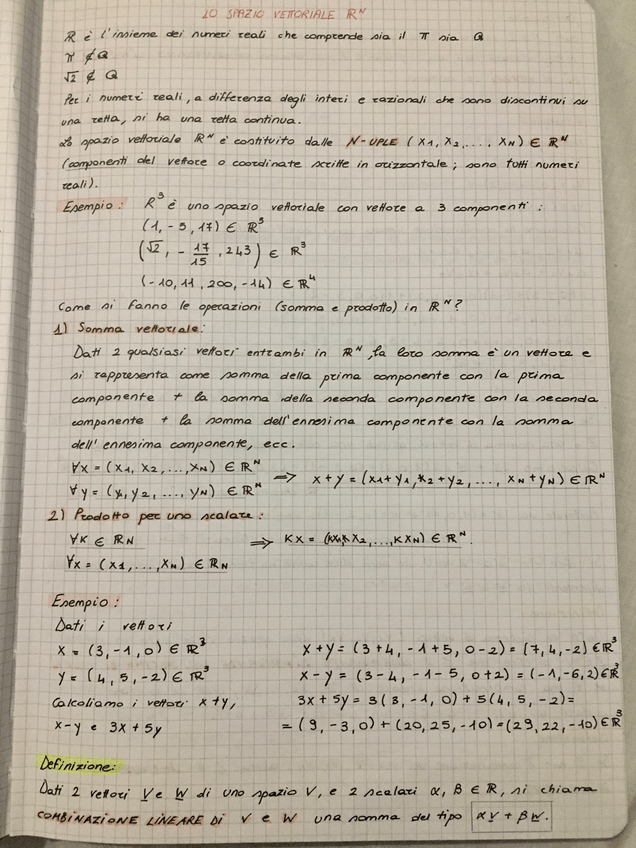 LO SPAZIO VETTORIALE ℝᴺ
ℝ è l'insieme dei numeri reali che comprende sia il π sia Q
π ∉ Q
√2 ∉ Q
Per i numeri reali, a differenza degli interi e razionali che sono discontinui su
una retta, si ha una retta continua.
Lo spazio vettoriale ℝᴺ è costituito dalle N-UPLE (x1, x2, ..., xN) ∈ ℝᴺ
(componenti del vettore o coordinate scritte in orizzontale; sono tutti numeri
reali).
Esempio: ℝ³ è uno spazio vettoriale con vettore a 3 componenti:
(1, -5, 17) ∈ ℝ³
(√2, - 17/15, 243) ∈ ℝ³
(-10, 11, 200, -14) ∈ ℝ⁴
Come si fanno le operazioni (somma e prodotto) in ℝᴺ?
1) Somma vettoriale:
Dati 2 qualsiasi vettori entrambi in ℝᴺ, la loro somma è un vettore e
si rappresenta come somma della prima componente con la prima
componente + la somma della seconda componente con la seconda
componente + la somma dell'ennesima componente con la somma
dell'ennesima componente, ecc.
∀x = (x1, x2, ..., xN) ∈ ℝᴺ
∀y = (y1, y2, ..., yN) ∈ ℝᴺ ⇒ x+y = (x1+y1, x2+y2, ..., xN+yN) ∈ ℝᴺ
2) Prodotto per uno scalare:
∀K ∈ ℝN ⇒ Kx = (Kx1, K x2, ..., K xN) ∈ ℝᴺ.
∀x = (x1, ..., xN) ∈ ℝN
Esempio:
Dati i vettori
x = (3, -1, 0) ∈ ℝ³ x+y = (3+4, -1+5, 0-2) = (7, 4, -2) ∈ ℝ³
y = (4, 5, -2) ∈ ℝ³ x-y = (3-4, -1-5, 0+2) = (-1, -6, 2) ∈ ℝ³
Calcoliamo i vettori x+y, 3x+5y = 3(3, -1, 0) + 5(4, 5, -2) =
x-y e 3x+5y = (9, -3, 0) + (20, 25, -10) = (29, 22, -10) ∈ ℝ³
Definizione:
Dati 2 vettori V e W di uno spazio V, e 2 scalari α, β ∈ ℝ, si chiama
COMBINAZIONE LINEARE DI V e W una somma del tipo αV + βW.